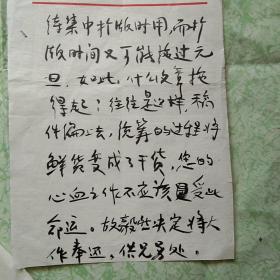 待集中扩版时用，而扩
版时间又可能拖过元
旦，如此，什么文章拖
得起？往往是这样，稿
件偏上去，统筹的过程将
鲜货变成了干货，您的
心血之作不应该遭受此
命运。故毅然决定将大
作奉还，供兄另处。